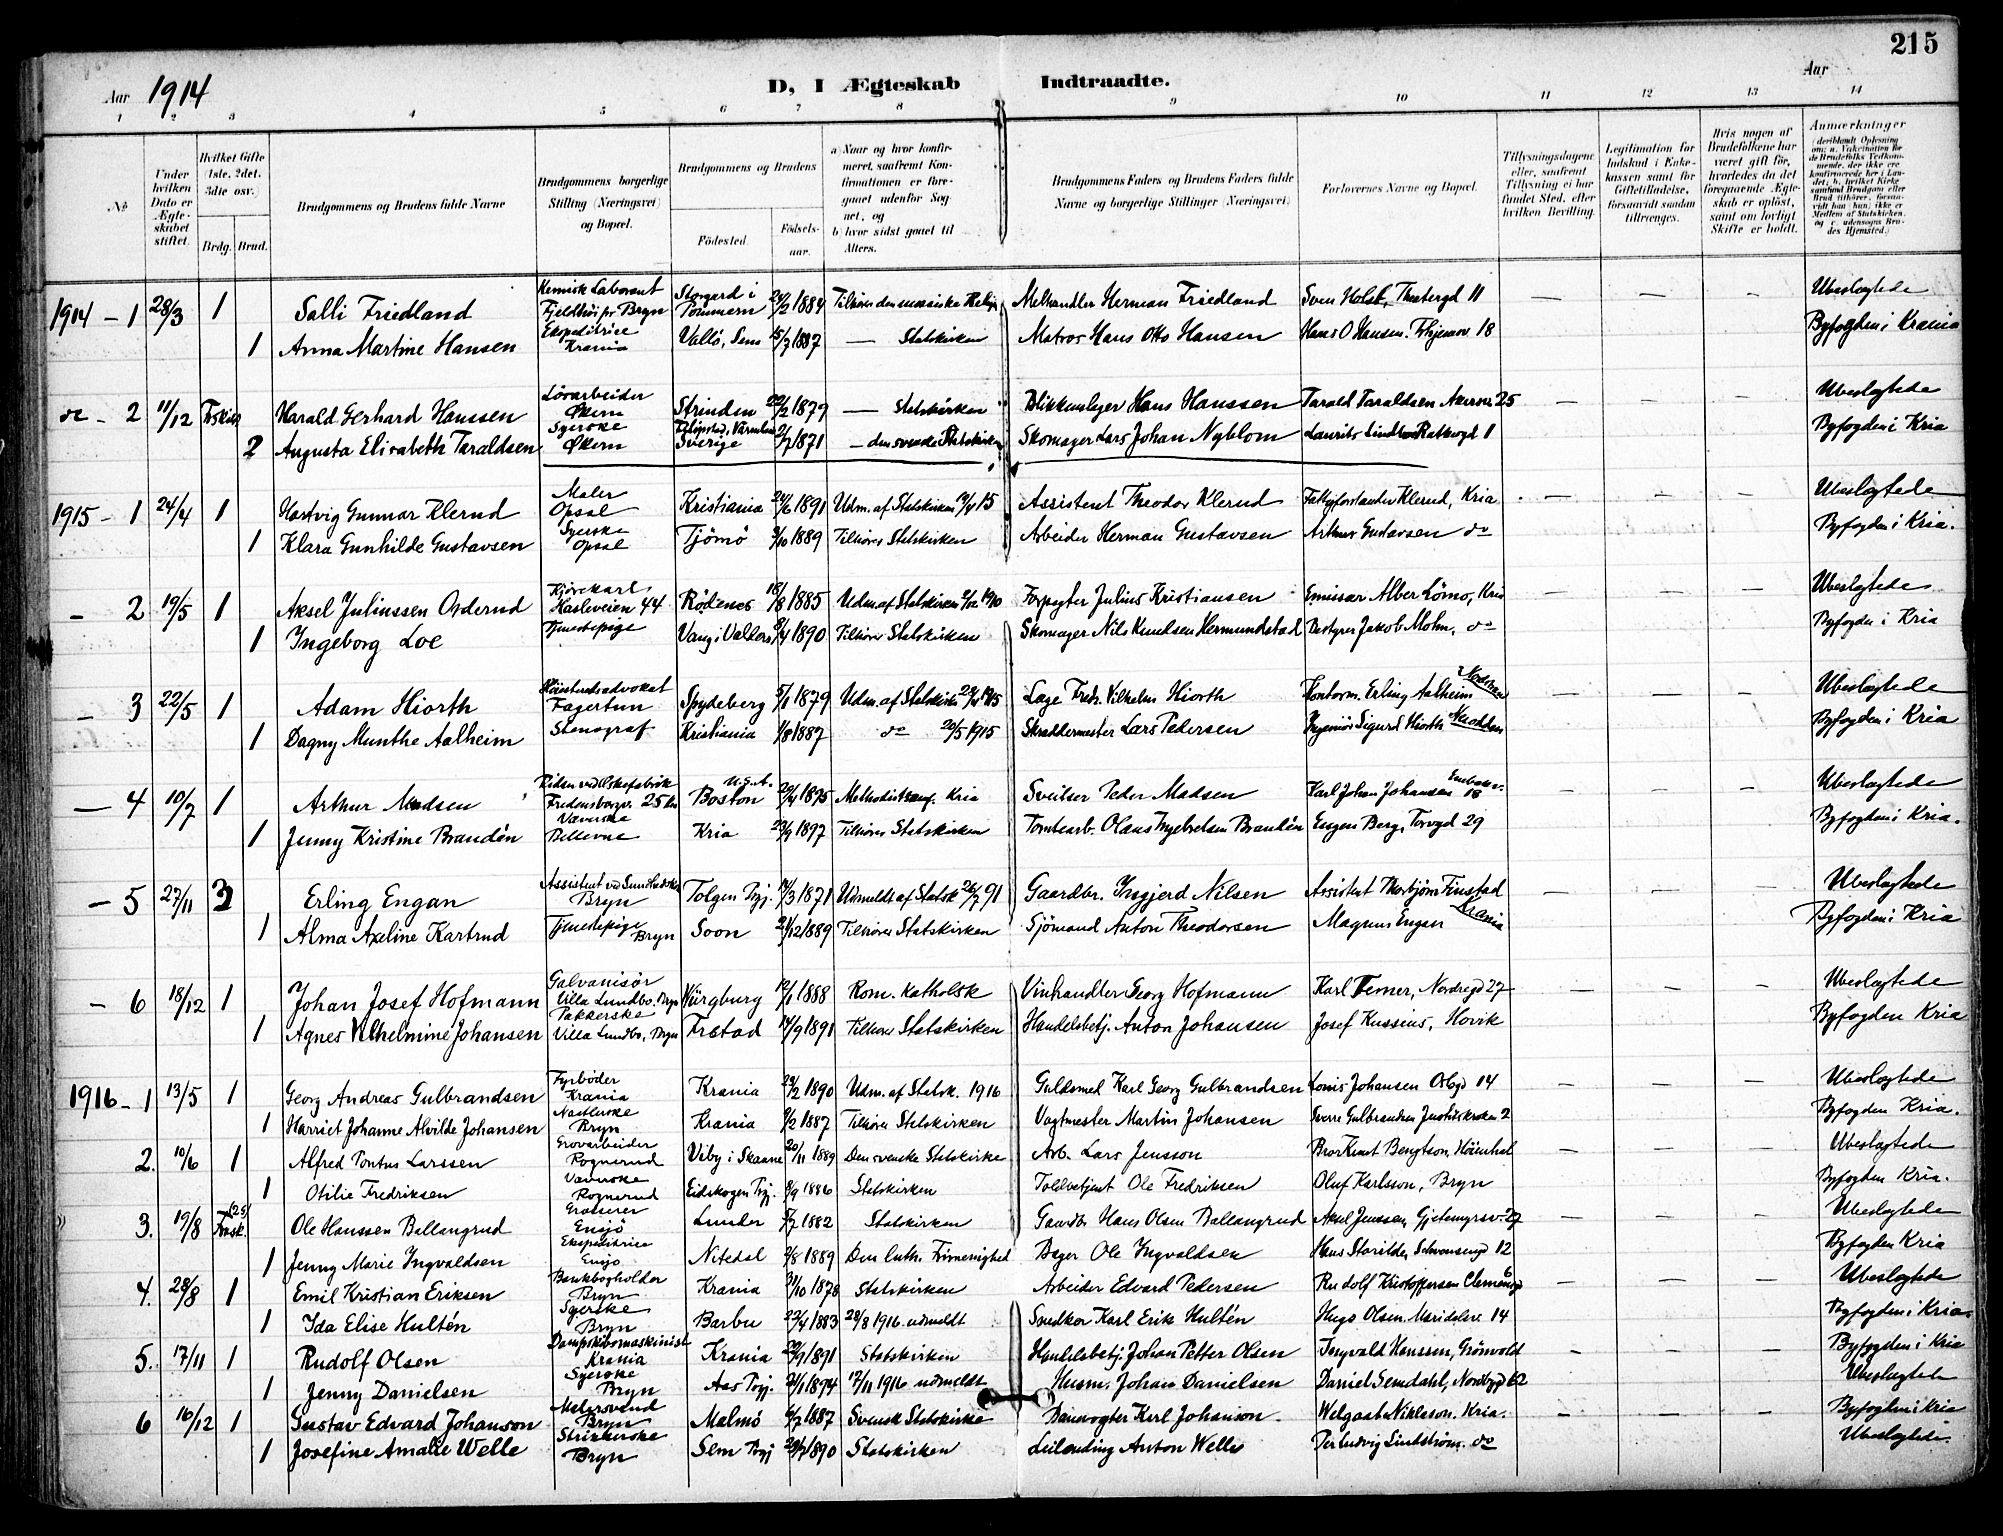 215
Aar 1914 D, I Ægteskab Indtraadte. Aar
1 2 3 4 5 6 7 8 9 10 11 12 13 14
No
Under hvilken Dato er Ægteskabet stiftet.
Hvilket Gifte (1ste, 2det, 3die osv.)
Brdg. Brud.
Brudgommens og Brudens fulde Navne
Brudgommens borgerlige Stilling (Næringsvei) og Bopæl.
Brudgommens og Brudens
Fødested. Fødselsaar.
a) Naar og hvor konfirmeret, saafremt Konfirmationen er foregaaet udenfor Sognet, og
b) hvor sidst gaaet til Alters.
Brudgommens Faders og Brudens Faders fulde Navne og borgerlige Stillinger (Næringsvei)
Forlovernes Navne og Bopæl.
Tillysningsdagene eller, saafremt Tillysning ei har fundet Sted, efter hvilken Bevilling.
Legitimation for Indskud i Enkekassen samt for Giftetilladelse, forsaavidt saadan tiltrænges.
Hvis nogen af Brudefolkene har været gift før, hvorledes da det foregaaende Ægteskab er opløst, samt om lovligt Skifte er holdt.
Anmærkninger
1914 – 1 28/3 1 Salli Friedland Kemisk Laborant Fjeldhöi pr Bryn Stargard i Pommern 24/2 1884 Tilhör den mosaiske Religi Melhandler Herman Friedland Sven Holst, Theatergd 11 — — — Ubeslægtede
1 Anna Martine Hansen Ekspeditrice Krania Vallö, Sem 15/7 1887 — Statskirken Matros Hans Otto Hansen Hans O Hansen. 18 Byfogden i Krania
do – 2 11/12 Frskilt Harald Gerhard Hanssen Lörarbeider Økern Strinden 22/2 1879 — Statskirken Blikkenslager Hans Hanssen Tarald Taraldsen Akersv 25 — — — Ubeslægtede
2 Augusta Elisabeth Taraldsen Syerske Økern Sverige 2/7 1871 — den svenske Statskirken Skomager Lars Johan Nyblom Laurits Lindboe Ratkegd 1 Byfogden i Kria
1915 – 1 24/4 1 Hartvig Gunnar Klerud Maler Opsal Kristiania 24/6 1891 Udm. af Statskirken 19/4 15 Assistent Theodor Klerud Fattigforstander Klerud, Kria — — — Ubeslægtede
1 Klara Gunhilde Gustavsen Syerske Opsal Tjömö 3/10 1889 Tilhörer Statskirken Arbeider Herman Gustavsen Arthur Gustavsen do Byfogden i Kria.
– 2 19/5 1 Aksel Juliussen Osderud Kjörekarl Hasleveien 44 Rödenes 18/8 1885 Udm. af Statskirken 2/12 1910 Forpagter Julius Kristiansen Emissær Alber Lömo, Kria — — — Ubeslægtede
1 Ingeborg Loe Tjenestepige Vang i Valders 8/4 1890 Tilhörer Statskirken Skomager Nils Knudsen Hermundstad Bestyrer Jakob Mohn, do Byfogden i Kria
– 3 22/5 1 Adam Hiorth Höiesteretsadvokat Fagertun Spydeberg 5/1 1879 Udm. af Statskirk 29/4 1915 Læge Fredr. Vilhelm Hiorth Kontorm. Erling Aalheim Nordstran — — — Ubeslægtede
1 Dagny Munthe Aalheim Stenograf Kristiania 1/8 1887 do 20/5 1915 Skræddermester Lars Pedersen Ingeniör Sigurd Hiorth Nesodden Byfogden i Kria
– 4 10/7 1 Arthur Madsen Fredensborgv. 25 Boston U.S.A. 29/4 1895 Methodistsamf. Kria Sveitser Peder Madsen Karl Johan Johansen 18 — — — Ubeslægtede
1 Jenny Kristine Brandén Væverske Bellevue Kria 23/9 1897 Tilhörer Statskirken Tomtearb. Olaus Ingebretsen Brandén Eugen Berg, Torvgd 29 Byfogden i Kria.
– 5 27/11 3 Erling Engan Assistent ved Bryn Tolgen Prgj. 14/3 1871 Udmeldt af Statsk 26/7 91 Gaardbr. Ingjerd Nilsen Assistent Thorbjörn Finstad — — — Ubeslægtede
1 Alma Axeline Kartrud Tjenestepige Bryn Soon 21/12 1889 Tilhörer Statskirken Sjömand Anton Theodorsen Magnus Engan Krania Byfogden i Kria
– 6 18/12 1 Johan Josef Hofmann Galvanisör Villa Lundbo, Bryn Würzburg 12/1 1888 Rom. katholsk Vinhandler Georg Hofmann Karl Ferner, Nordregd 27 — — — Ubeslægtede
1 Agnes Vilhelmine Johansen Pakkerske Villa Lundbo, Bryn Frstad 14/9 1891 Tilhörer Statskirken Handelsbetj. Anton Johansen Josef Kussius, Hovik Byfogden Kria
1916 – 1 13/5 1 Georg Andreas Gulbrandsen Fyrböder Krania Krania 29/2 1890 Udm. af Statsk. 1916 Guldsmed Karl Georg Gulbrandsen Louis Johansen Osbgd 14 — — — Ubeslægtede
1 Harriet Johanne Alvilde Johansen Bryn Krania 9/2 1887 Tilhörer Statskirken Vagtmester Martin Johansen Sverre Gulbrandsen 2 Byfogden Kria.
2. 10/6 1 Alfred Pontus Larssen Grovarbeider Rognerud Urby i Skaane 20/11 1889 Den svenske Statskirke Arb. Lars Jensson Bror Knut Bengtson, Höienhal — — — Ubeslægtede
1 Otilie Fredriksen Væverske Rognerud Eidskogen Prgj. 9/9 1886 Statskirken Toldbetjent Ole Fredriksen Oluf Karlsson, Bryn Byfogden Kria.
3. 19/8 Frask. (25) Ole Hanssen Ballangrud Gravører Ensjö Lunder 7/7 1882 Statskirken Gaardbr Hans Olsen Ballangrud Aksel Jenssen, Gjetemyrsv. 27 — — — Ubeslægtede
1 Jenny Marie Ingvaldsen Ekspeditrice Ensjö Nitedal 2/8 1889 Den luth. Frimenighed Bager Ole Ingvaldsen Hans Storilde, Schwensengd 12 Byfogden Kria
4. 28/8 1 Emil Kristian Eriksen Bankbogholder Bryn Krania 31/10 1878 Statskirken Arbeider Edvard Pedersen Rudolf Kristoffersen Clemensgd 6 — — — Ubeslægtede
1 Ida Elise Hultén Syerske Bryn Barbu 22/4 1883 28/8 1916 udmeldt Snedker Karl Erik Hultén Hugo Olsen Maridalsv. 14 Byfogden i Kria.
5. 17/11 1 Rudolf Olsen Dampskibsmaskinist Krania Krania 29/9 1891 Statskirken Handelsbetj. Johan Petter Olsen Ingvald Hanssen, Grönvold — — — Byfogden i Kria
1 Jenny Danielsen Syerske Bryn Aas Prgj. 21/1 1874 17/11 1916 udmeldt Husm. Johan Danielsen Daniel Semdahl, Nordbygd 62 Ubeslægtede
6 16/12 1 Gustav Edvard Johanson Malersvend Bryn Malmö 6/7 1887 Svensk Statskirke Banevogter Karl Johanson. Niklasson. Kria. — — — Byfogden i Kria
1 Josefine Amalie Welle Strikkerske Bryn Slem Prgj 29/7 1890 Statskirken Leilending Anton Welle Per Ludvig Lindström. do Ubeslægtede.